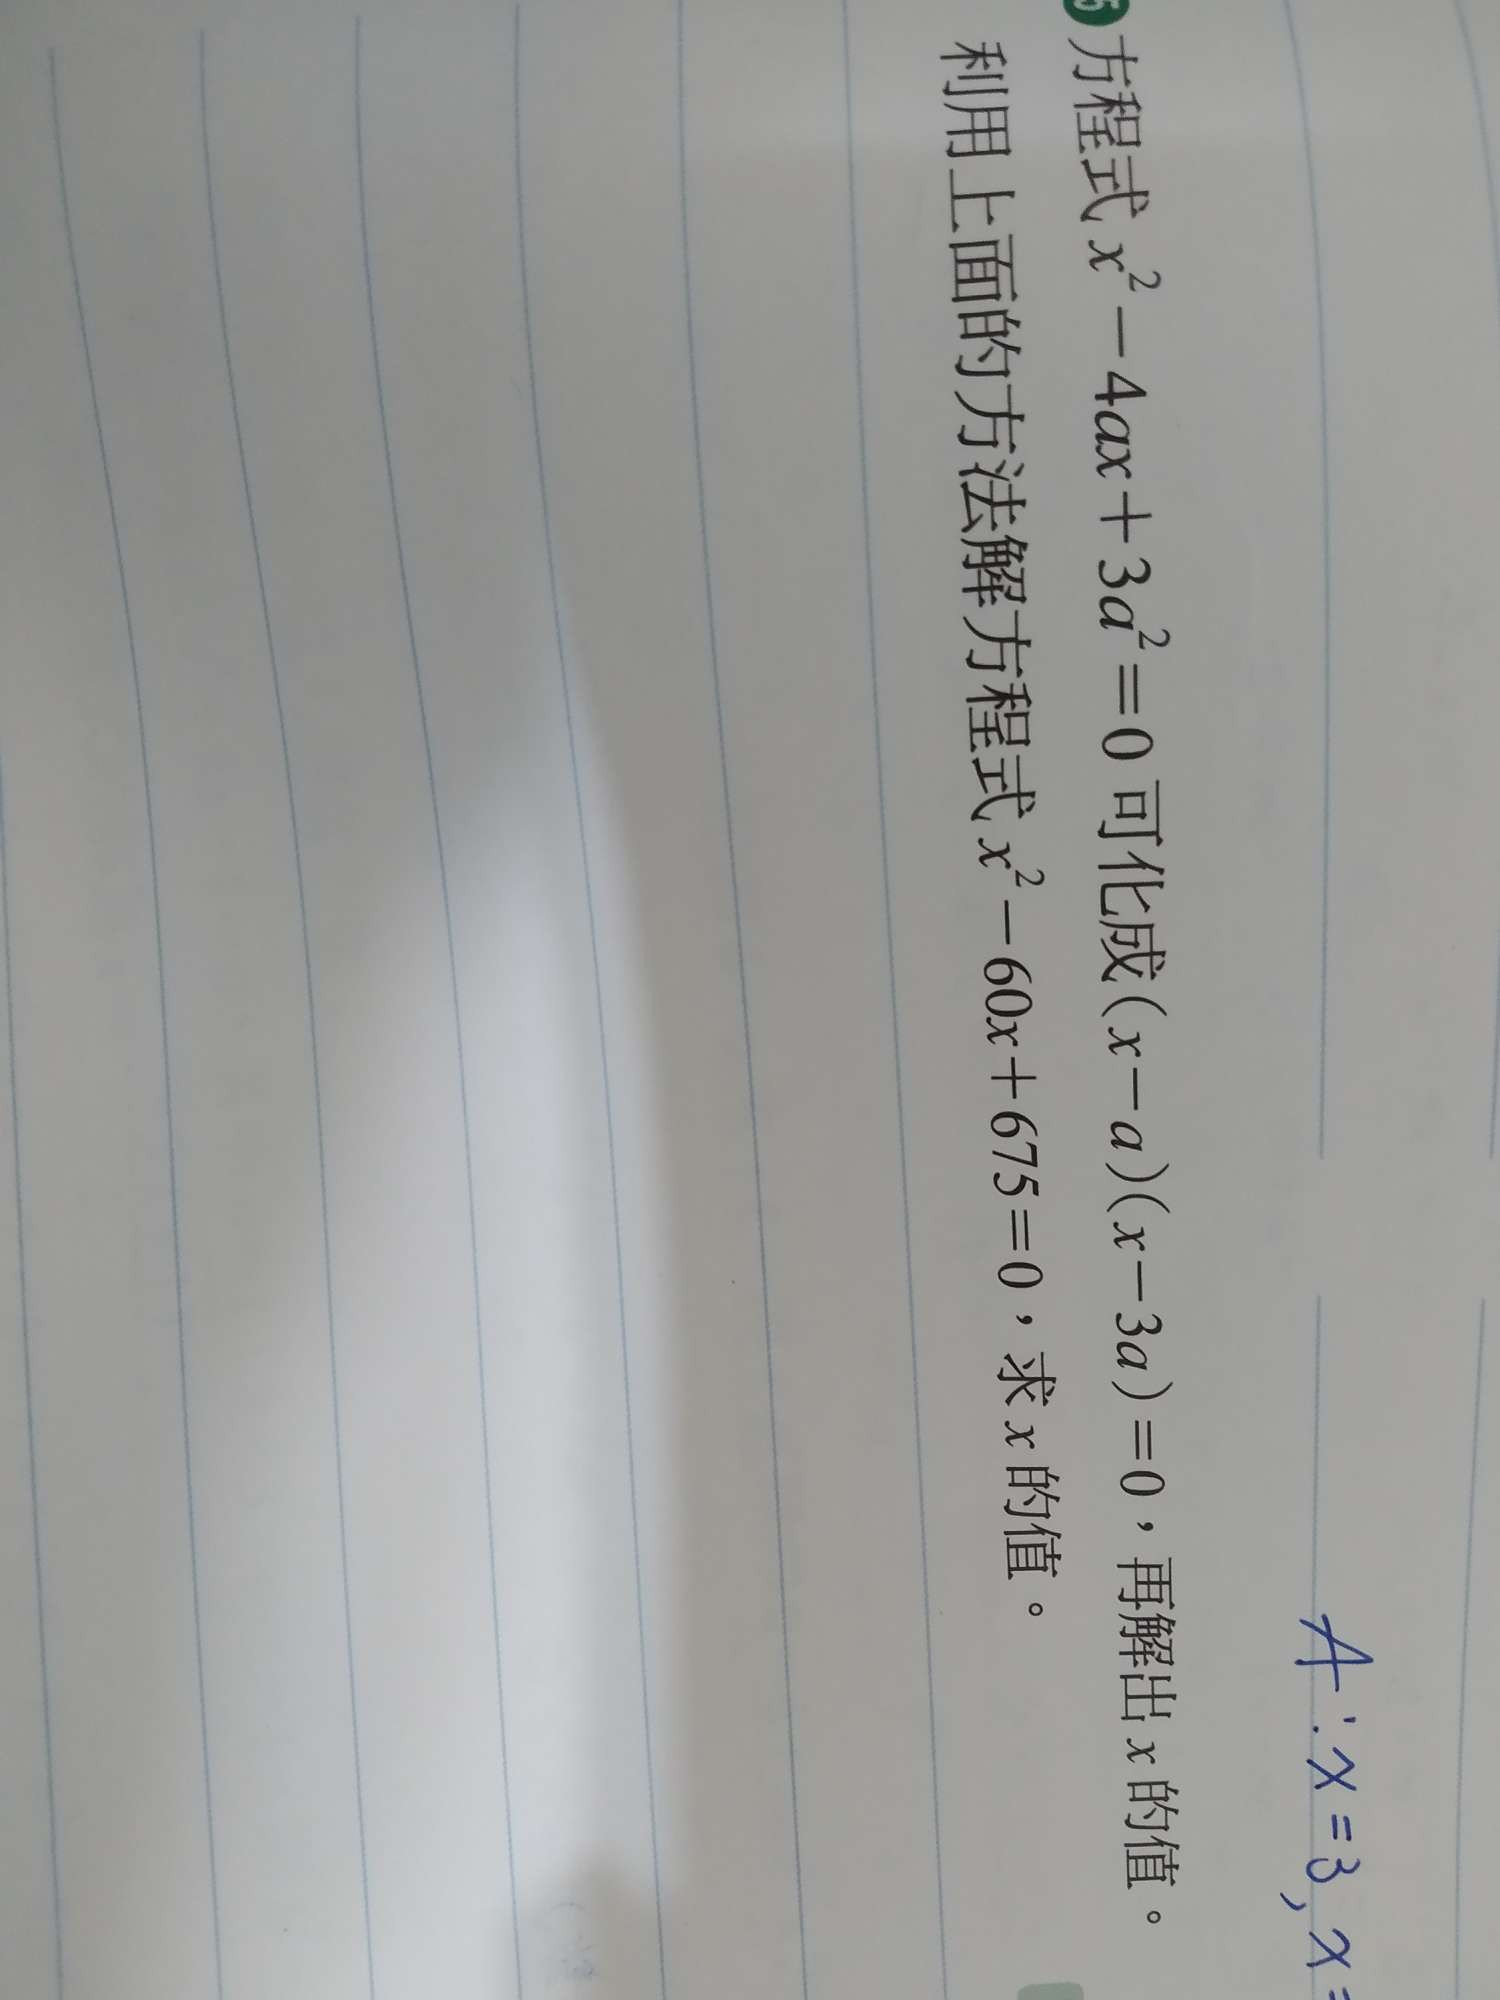 A：x=3, x=
5 方程式 x²－4ax＋3a²＝0 可化成(x－a)(x－3a)＝0，再解出 x 的值。
利用上面的方法解方程式 x²－60x＋675＝0，求 x 的值。